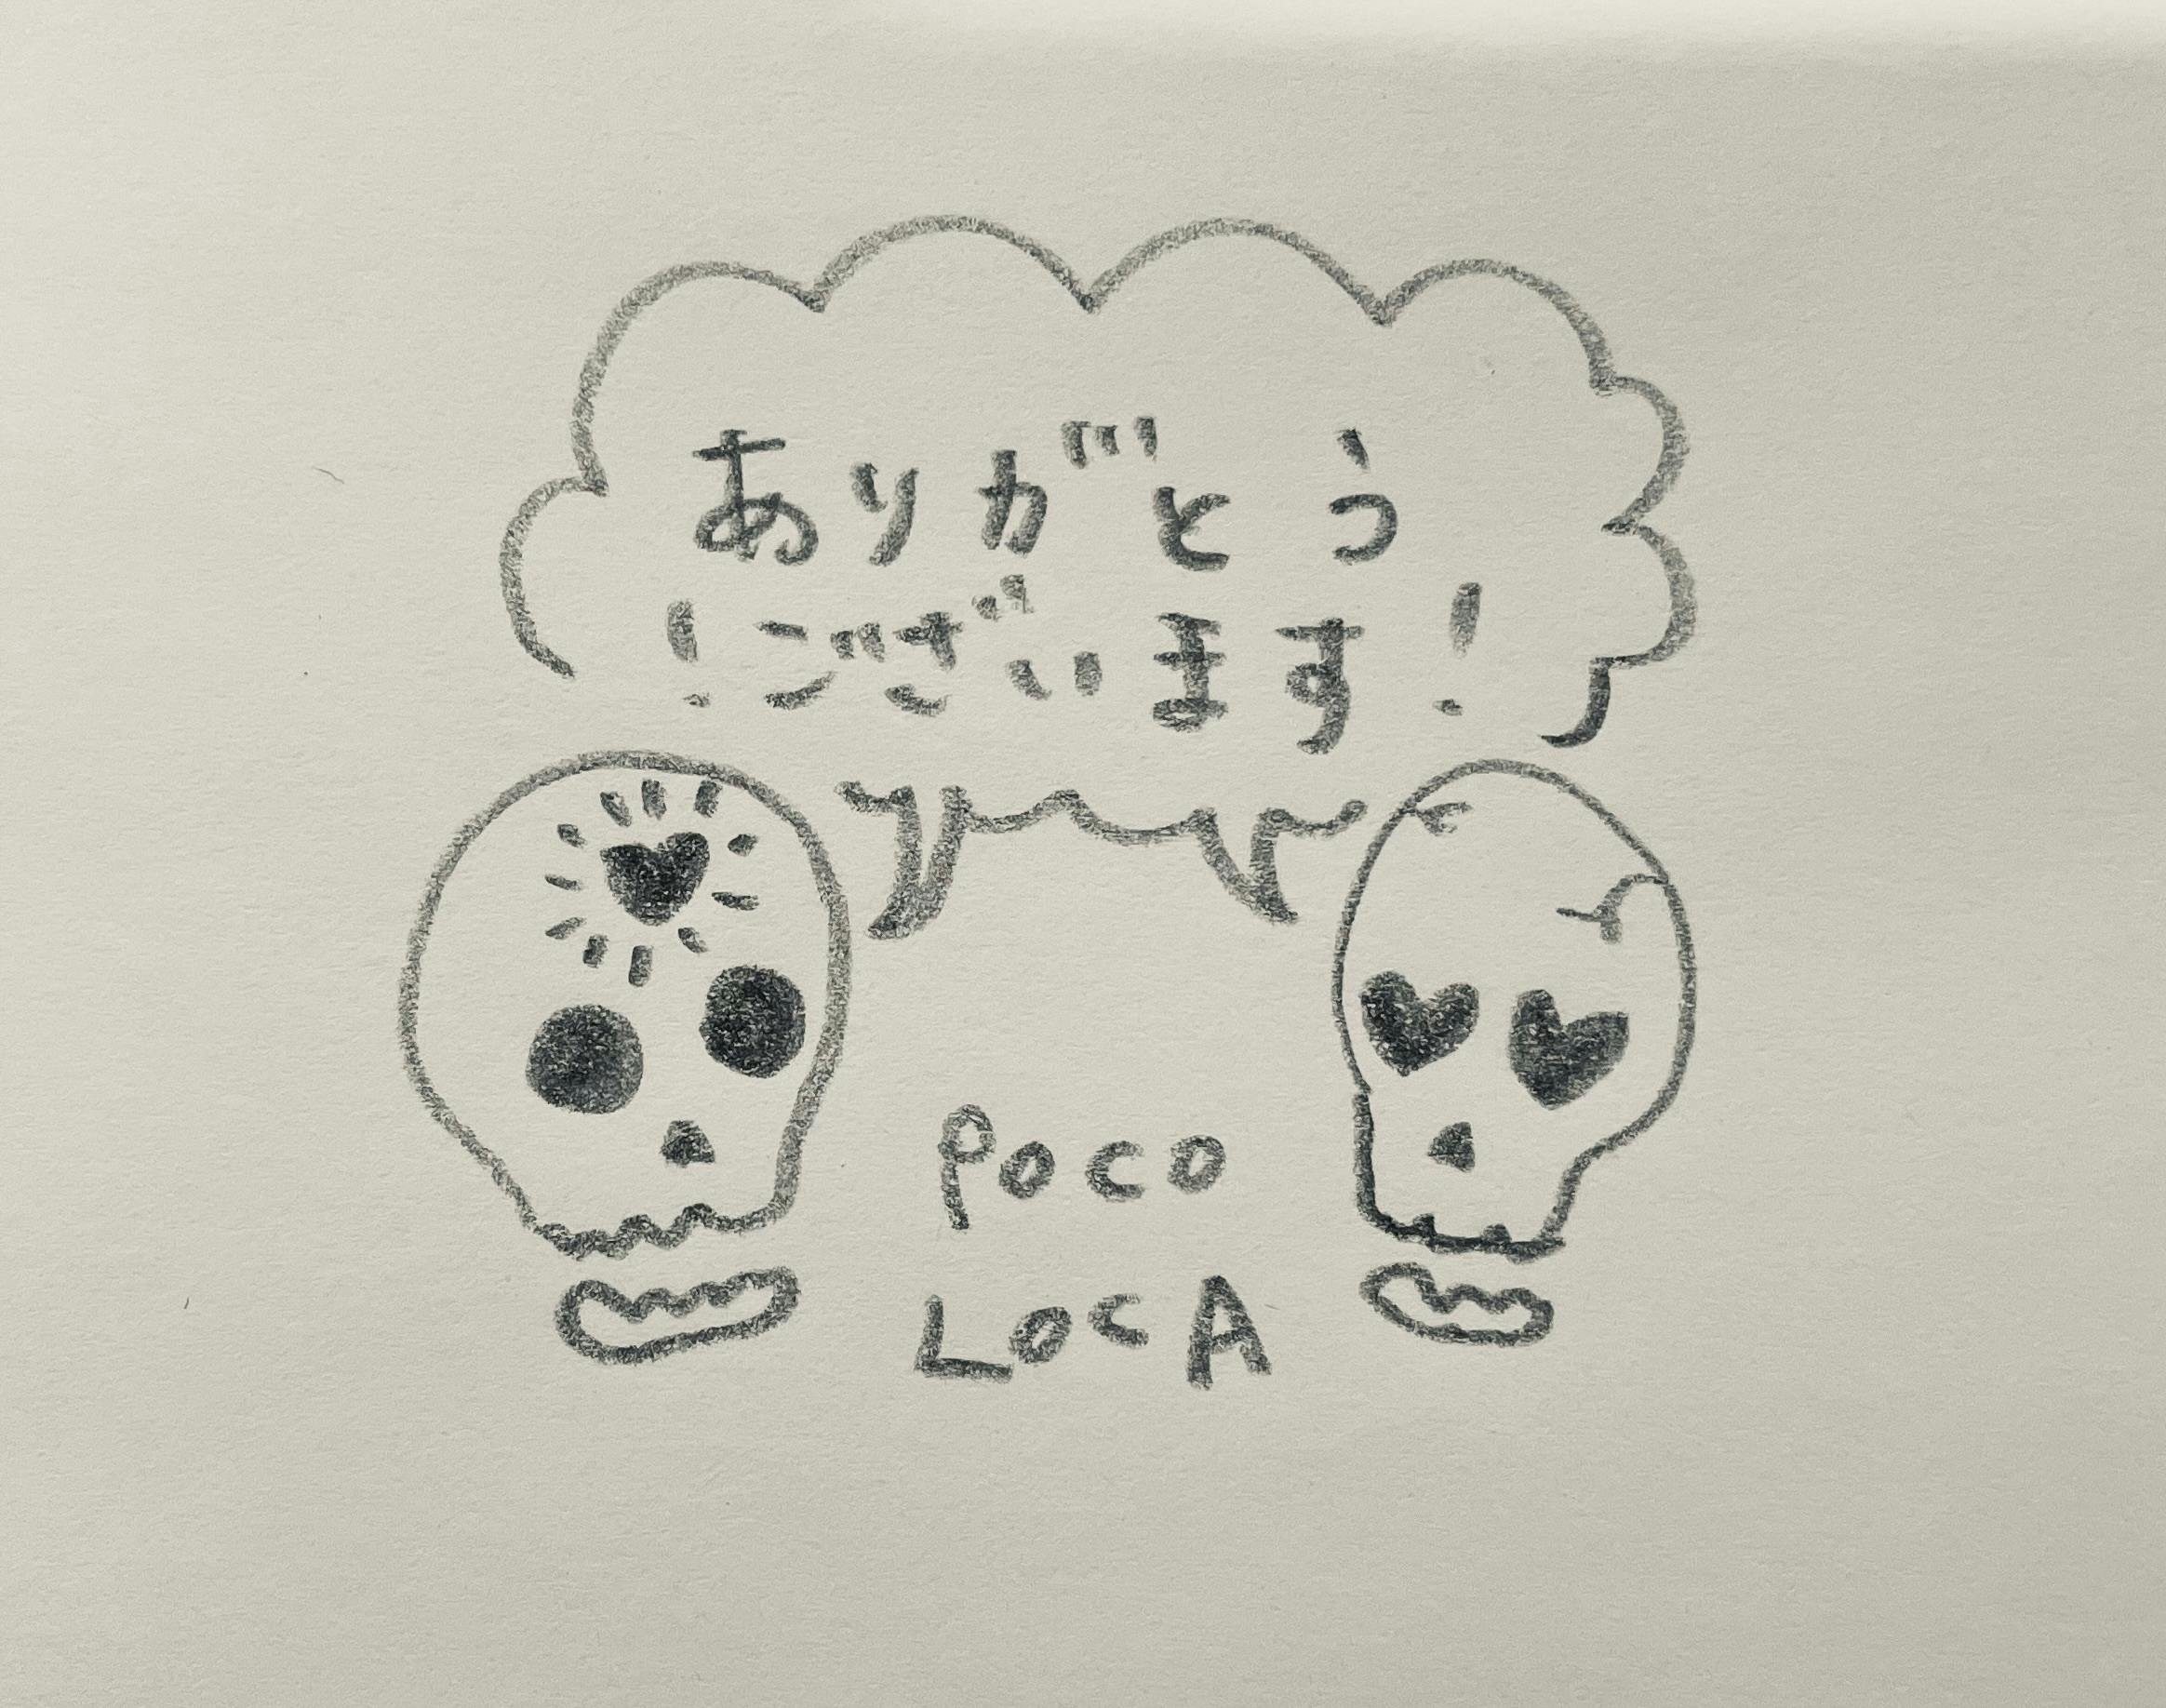 ありがとう
！ございます！
POCO
LOCA